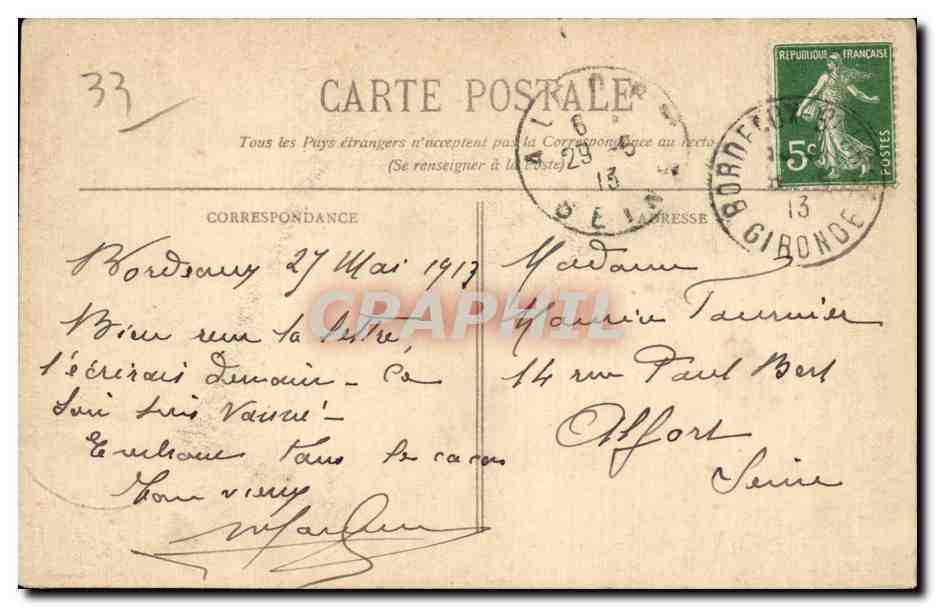 33
CARTE POSTALE
Tous les Pays étrangers n'acceptent pas la Correspondance au recto
(Se renseigner à la Poste)
RÉPUBLIQUE FRANÇAISE
5c
POSTES
6
29 -5
13
SEINE
BORDEAUX
13
GIRONDE
CORRESPONDANCE
Bordeaux 27 Mai 1913
Bien reçu ta lettre,
t'écrirais Demain - Ce
Soir suis Vanné -
tous les
Ton vieux
ADRESSE
Madame
Maurice Fournier
14 rue Paul Bert
Alfort
Seine
CPAPHIL